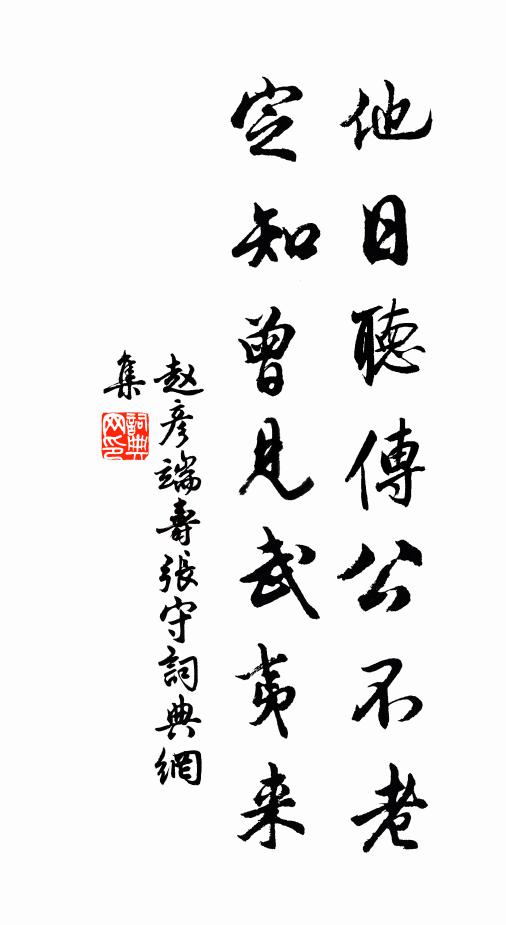 他日聽傳公不老
定知曾見武夷来
赵彦端壽張守詞典網
集
詞典网印